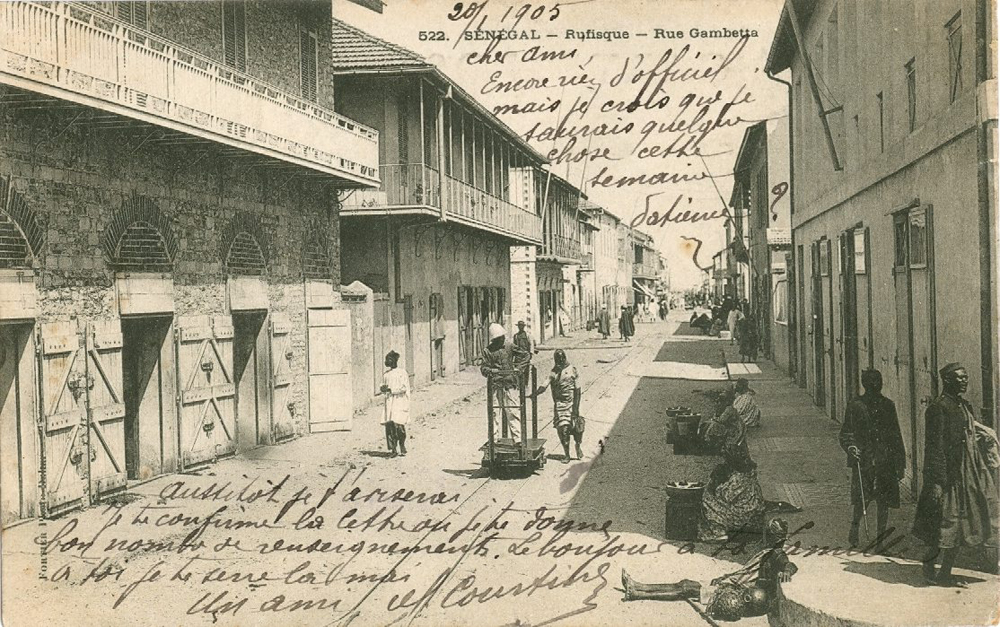 20/1 1905
522. SÉNÉGAL – Rufisque – Rue Gambetta
cher ami,
Encore rien d'officiel
mais je crois que je
saurais quelque
chose cette
semaine
Patience
aussitôt je t'aviserai
je te confirme la lettre où je te donne
bon nombre de renseignements. Le bonjour à ta famille
à toi je te serre la main
Un ami
FORTIER